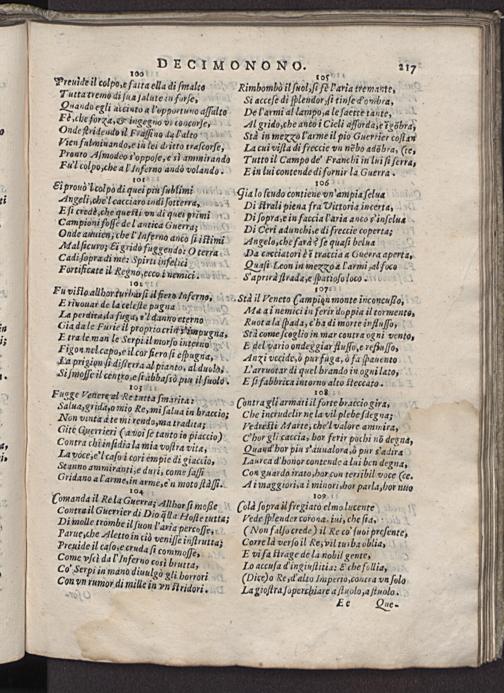 DECIMONONO. 217
100
Preuide il colpo, e fatta ella di smalto
Tutta tremo di sua salute in forse,
Quando egli accinto a l'opportuno assalto
Fè, che forza, & ingegno vi concorse,
Onde stridendo il Frassino da l'alto
Vien fulminando, e in lei dritto trascorse,
Pronto Asmodeo s'oppose, e sì ammirando
Fù 'l colpo, che a l'Inferno andò volando.
101
Ei prouò 'l colpo di quei più sublimi
Angeli, che 'l cacciaro indi sotterra,
E si crede, che questi vn di quei primi
Campioni fosse de l'antica Guerra;
Onde auuien, che l'Inferno anco si istimi
Mal sicuro; Ei gridò fuggendo: O terra
Cadi sopra di me: Spirti infelici
Fortificate il Regno, ecco i nemici.
102
Fù visto allhor turbarsi il fiero Inferno,
E rinouar de la celeste pugna
La perdita, la fuga, e 'l danno eterno
Gia da le Furie il proprio crin s'impugna,
E tra le man le Serpi il morso interno
Figon nel capo, e il cor fiero si espugna,
La prigion si disserra al pianto, al duolo,
Si mosse il centro, e s'abbassò più il suolo.
103
Fugge Venere al Re tutta smarita:
Salua, grida, o mio Re, mi salua in braccio;
Non vinta à te mi rendo, ma tradita;
Gite Guerrieri (a voi se tanto io piaccio)
Contra chi insidia la mia vostra vita,
La voce, e 'l caso i cori empie di giaccio,
Stanno ammiranti, e duri, come sassi
Gridano a l'arme, in arme, e 'n moto stassi.
104
Comanda il Re la Guerra; Allhor si mosse
Contra il Guerrier di Dio q̃lla Hoste tutta;
Di molle trombe il suon l'aria percosse,
Parue, che Aletto in ciò venisse instrutta,
Preuide il caso, e cruda si commosse,
Come vscì da l'Inferno così brutta,
Co' Serpi in mano diuulgò gli horrori
Con vn rumor di mille in vn stridori.
105
Rimbombò il suol, si fè l'aria tremante,
Si accese di splendor, si tinse d'ombra,
De l'armi al lampo, a le saette tante,
Al grido, che anto i Cieli assorda, e ĩgõbra,
Stà in mezzo a l'arme il pio Guerrier costan
La cui vista di freccie vn nẽbo adõbra, (te,
Tutto il Campo de' Franchi in lui si serra,
E in lui contende di fornir la Guerra.
106
Gia lo scudo contiene vn'ampia selua
Di strali piena fra Vittoria incerta,
Di sopra, e in faccia l'aria anco s'inselua
Di Ceri adunchi, e di freccie coperta;
Angelo, che farà? se quasi belua
Da cacciatori è i traccia a Guerra aperta,
Quasi Leon in mezzo a l'armi, al foco
S'aprirà strada, e spatoso loco.
107
Stà il Veneto Campion monte inconcusso,
Ma a i nemici in ferir doppia il tormento,
Ruota la spada, c'ha di morte influsso,
Stà come scoglio in mar contra ogni vento,
E del vario ondeggiar flusso, e reflusso,
Anzi vccide, ò pur fuga, ò fa spauento
L'arruotar di quel brando in ogni lato,
E si fabbrica intorno alto steccato.
108
Contra gli armati il forte braccio gira,
Che incrudelir ne la vil plebe sdegna;
Vedresti Marte, che 'l valore ammira,
C'hor gli caccia, hor ferir pochi nõ degna,
Quand'hor piu s'auualora, ò pur s'adira
Laurea d'honor contende a lui ben degna,
Con guardo irato, hor con terribil voce (ce.
A i maggiori, a i minori, hor parla, hor nuo
109
Colà sopra il fregiato elmo lucente
Vede splender corona. iui, che sia,
(Non falso crede) il Re co' suoi presente,
Corre là verso il Re, vil turba oblia,
E vi fa strage de la nobil gente,
Lo accusa d'ingiustitia: E che follia,
(Dice) o Re, d'alto Imperio, contra vn solo
La giostra soperchiare a stuolo, a stuolo.
Ee Que-